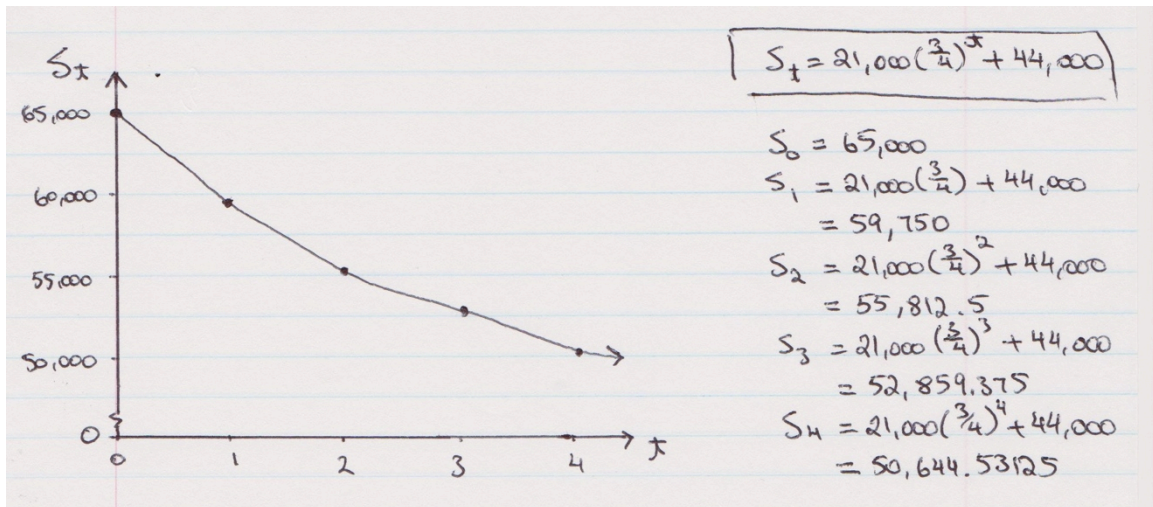 Sₜ
65,000
60,000
55,000
50,000
0
0 1 2 3 4 t
Sₜ = 21,000(3/4)ᵗ + 44,000
S₀ = 65,000
S₁ = 21,000(3/4) + 44,000
= 59,750
S₂ = 21,000(3/4)² + 44,000
= 55,812.5
S₃ = 21,000(3/4)³ + 44,000
= 52,859.375
S₄ = 21,000(3/4)⁴ + 44,000
= 50,644.53125